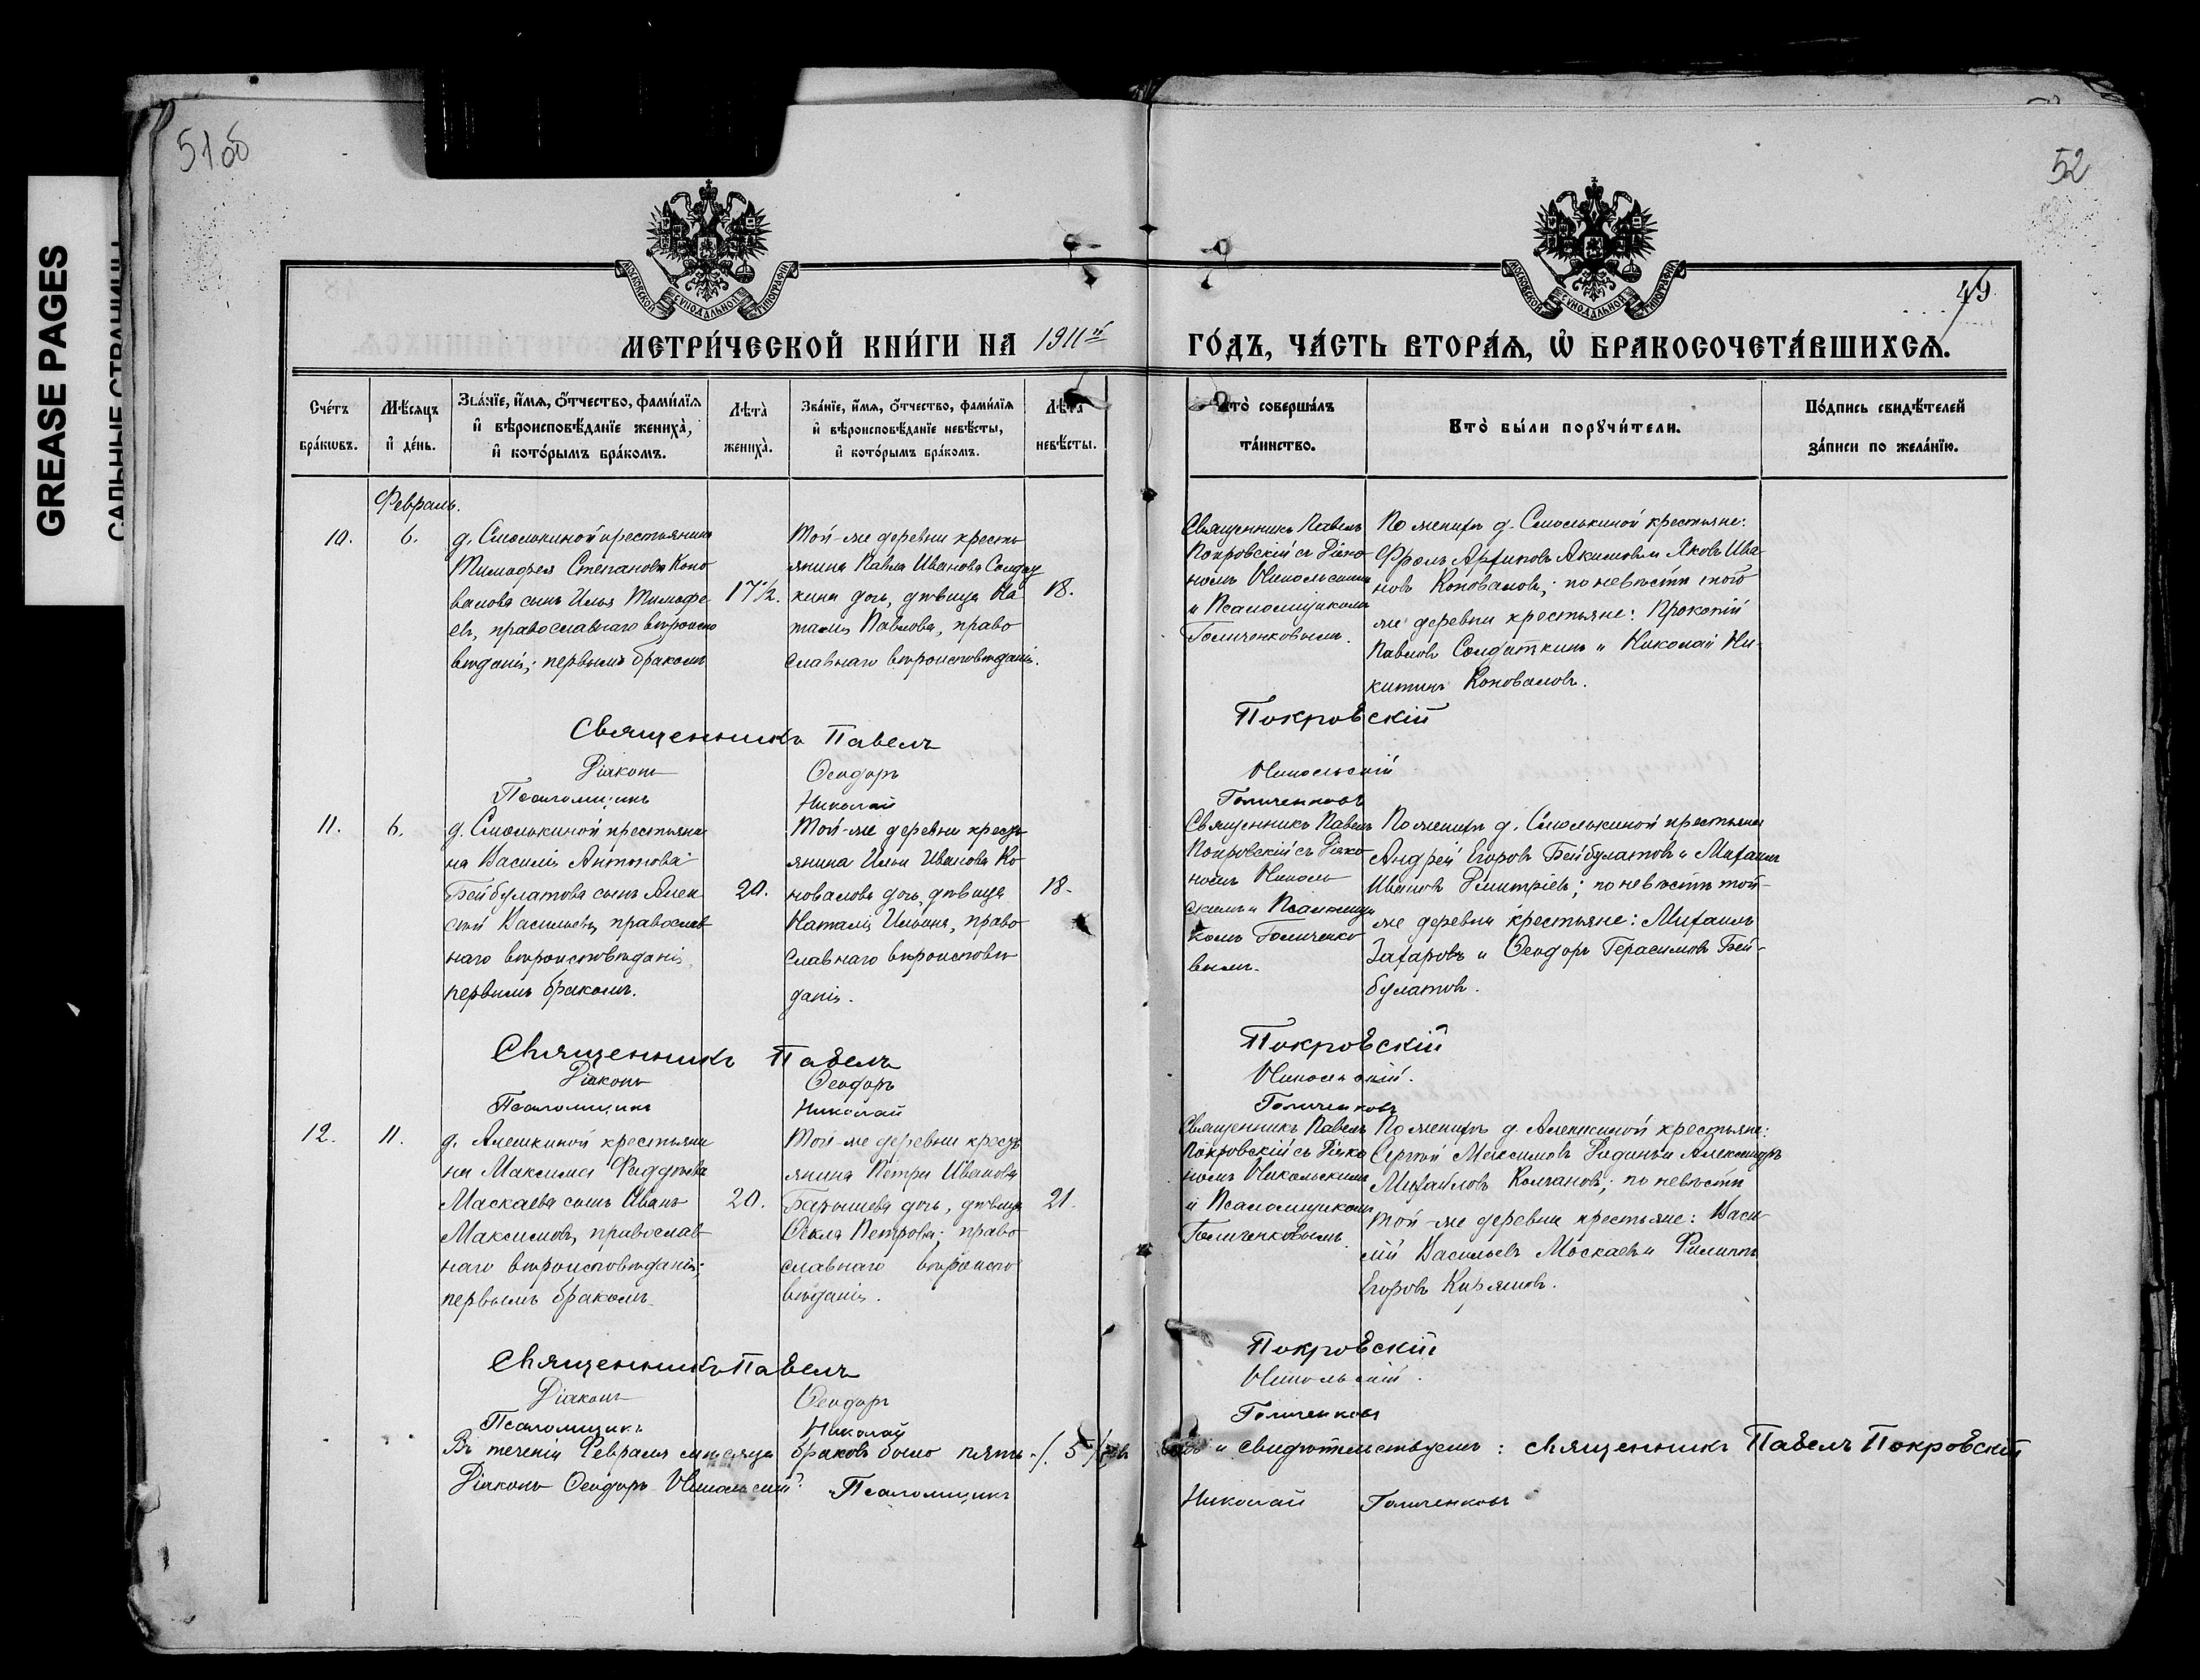 GREASE PAGES
САЛЬНЫЕ СТРАНИЦЫ
51об
52
49
МОСКОВСКОЙ СѴНОДАЛЬНОЙ ТИПОГРАФІИ
МОСКОВСКОЙ СѴНОДАЛЬНОЙ ТИПОГРАФІИ
МЕТРИ́ЧЕСКОЙ КНИ́ГИ НА 1911й ГО́ДЪ, ЧА́СТЬ ВТОРА́Я, Ѡ҆ БРАКОСОЧЕТА́ВШИХСЯ.
Сче́тъ бра́кѡвъ.
Мѣ́сяцъ и҆ де́нь.
Зва́нїе, и҆́мя, ѻ҆́тчество, фами́лїя и҆ вѣроисповѣ́данїе жениха̀, и҆ кото́рымъ бра́комъ.
Лѣ́та̀ жениха̀.
Зва́нїе, и҆́мя, ѻ҆́тчество, фами́лїя и҆ вѣроисповѣ́данїе невѣ́сты, и҆ кото́рымъ бра́комъ.
Лѣ́та̀ невѣ́сты.
Кто̀ соверша́лъ та́инство.
Кто̀ бы́ли порꙋчи́тели.
По́дпись свидѣ́телей за́писи по жела́нїю.
Февраль.
10.
6.
д. Смолькиной крестьянина
Тимофея Степанова Коно
валова сынъ Илья Тимофе
евъ, православнаго вѣроиспо
вѣданія; первымъ бракомъ
17½.
Той-же деревни кресть
янина Павла Иванова Солдат
кина дочь, дѣвица На
талія Павлова, право
славнаго вѣроисповѣданія.
18.
Священникъ Павелъ
Покровскій съ Діако
номъ Никольскимъ
и Псаломщикомъ
Голиченковымъ.
По женихѣ д. Смолькиной крестьяне:
Фролъ Архиповъ Акимовъ и Яковъ Ива-
новъ Коноваловъ; по невѣстѣ той
же деревни крестьяне: Прокопій
Павловъ Солдаткинъ и Николай Ни-
китинъ Коноваловъ.
Священникъ Павелъ Покровскій
Діаконъ Ѳеодоръ Никольскій
Псаломщикъ Николай Голиченковъ
11.
6.
д. Смолькиной крестьяни
на Василія Антонова
Бейбулатова сынъ Алек
сѣй Васильевъ, православ
наго вѣроисповѣданія,
первымъ бракомъ.
20.
Той-же деревни кресть
янина Ильи Иванова Ко
новалова дочь, дѣвица
Наталія Ильина, право
славнаго вѣроисповѣ
данія.
18.
Священникъ Павелъ
Покровскій съ Діако
номъ Николь
скимъ и Псаломщи
комъ Голиченко
вымъ.
По женихѣ д. Смолькиной крестьяне
Андрей Егоровъ Бейбулатовъ и Михаилъ
Ивановъ Дмитріевъ; по невѣстѣ той-
же деревни крестьяне: Михаилъ
Захаровъ и Ѳеодоръ Герасимовъ Бей-
булатов.
Священникъ Павелъ Покровскій
Діаконъ Ѳеодоръ Никольскій.
Псаломщикъ Николай Голиченковъ
12.
11.
д. Алешкиной крестьяни
на Максима Фаддѣева
Маскаева сынъ Иванъ
Максимовъ, православ
наго вѣроисповѣданія;
первымъ бракомъ.
20.
Той-же деревни кресть
янина Петра Иванова
Барышева дочь, дѣвица
Ѳекла Петрова; право
славнаго вѣроиспо
вѣданія.
21.
Священникъ Павелъ
Покровскій съ Діако
номъ Никольскимъ
и Псаломщикомъ
Голиченковымъ.
По женихѣ д. Алешкиной крестьяне:
Сергѣй Максимовъ и Александръ
Михайловъ Колчановъ; по невѣстѣ
той-же деревни крестьяне: Васи-
лій Васильевъ Маскаевъ и Филиппъ
Егоровъ
Священникъ Павелъ Покровскій
Діаконъ Ѳеодоръ Никольскій.
Псаломщикъ Николай Голиченковъ
Въ теченіи Февраля мѣсяца браковъ было пять ./. 5 и свидѣтельствуемъ: Священникъ Павелъ Покровскій
Діаконъ Ѳеодоръ Никольскій Псаломщикъ Николай Голиченковъ